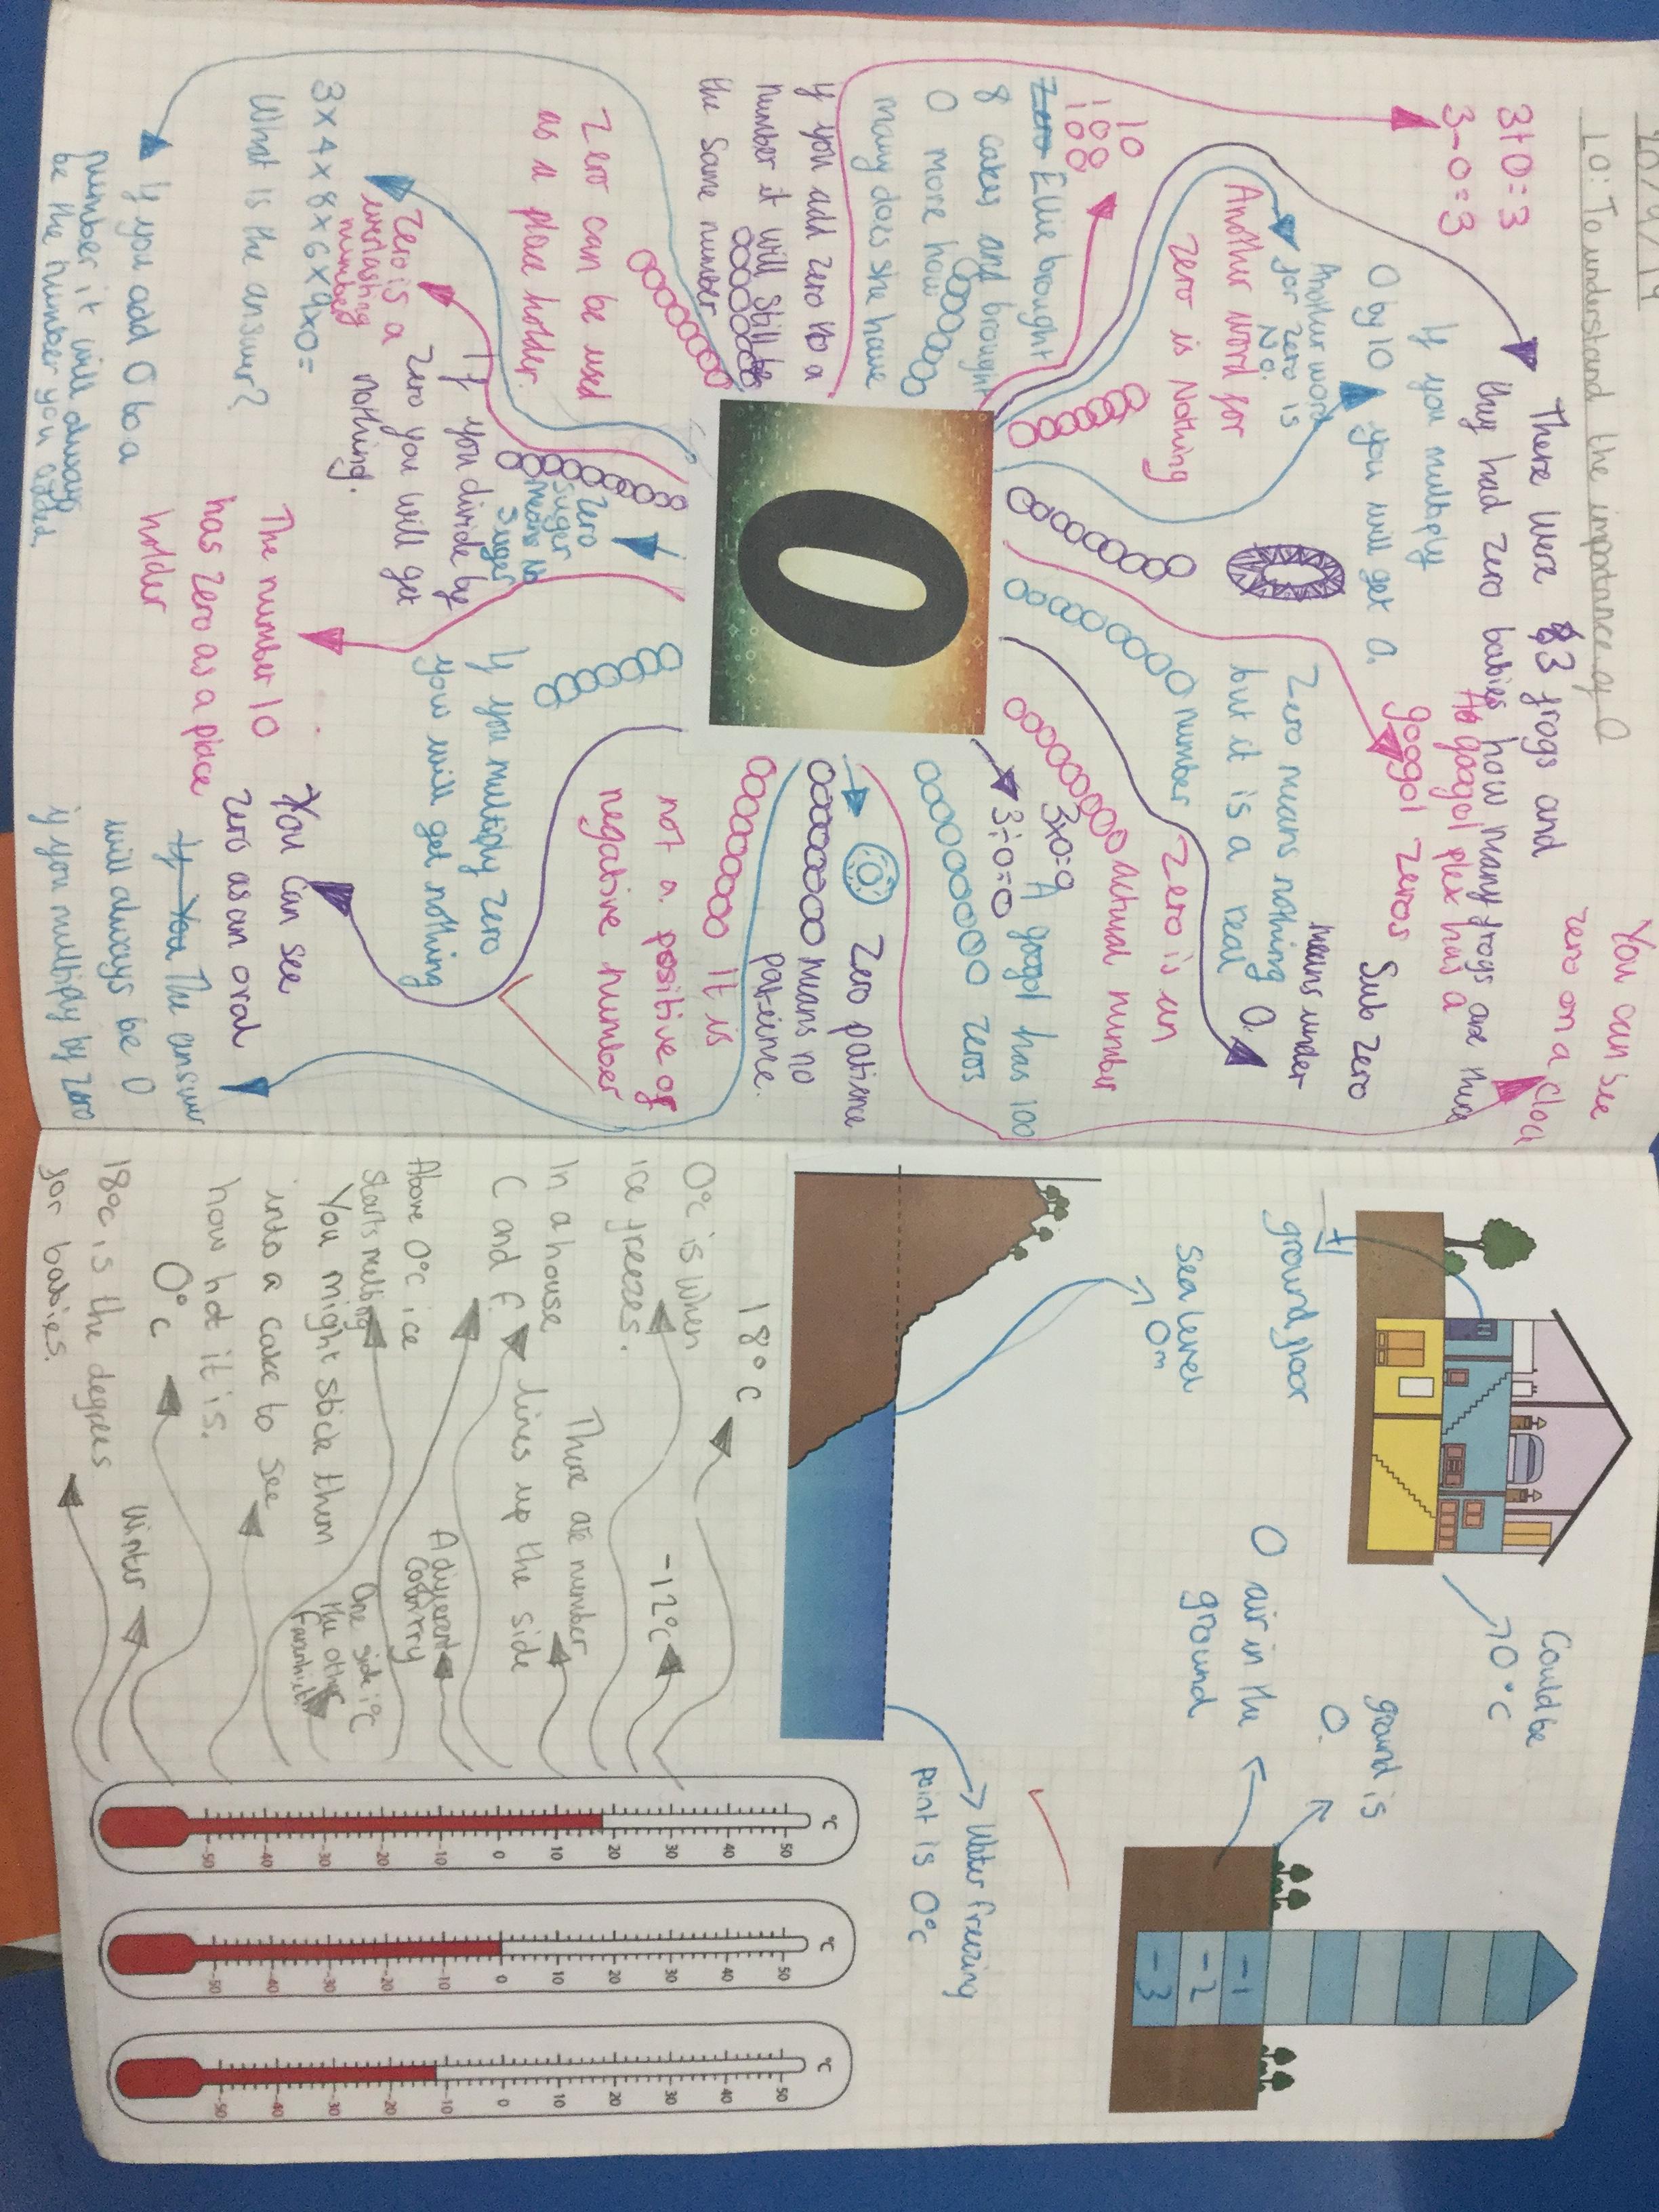 20/9/19
LO: To understand the importance of 0
3+0=3
3-0=3
There were 3 frogs and
they had zero babies how many frogs are their
You can see
zero on a clock
If you multiply
0 by 10 you will get 0.
Another word
for zero is
No.
Another word for
zero is Nothing
10
100
100
Zero Ellie brought
8 cakes and brought
0 more how
many does she have
if you add zero to a
number it will still be
the same number
A googol plex has a
googol zeros
Sub zero
means under
0.
Zero means nothing
but it is a real
number
Zero is an
actual number
3x0=0
3÷0=0
A googol has 100
zeros
Zero patience
means no
patience.
It is
not a positive or
negative number
Zero can be used
as a place holder.
Zero is a
everlasting
number
3x4x8x6x9x0=
What is the answer?
If you divide by
zero you will get
nothing.
Zero
suger
means No
suger
If you multiply zero
you will get nothing
If you add 0 to a
number it will always
be the number you added.
The number 10
has zero as a place
holder
You can see
zero as an oral
If You The answer
will always be 0
if you multiply by zero
ground floor
Could be
0°C
ground is
0.
0 air in the
ground
-1
-2
-3
Sea level
0m
Water freezing
point is 0°C
18°C
0°C is when
ice freezes.
-12°C
There are number
lines up the side
In a house
C and F.
A different
country
Above 0°C ice
starts melting
One side °C
the other
Farenhiet
You might stick them
into a cake to see
how hot it is.
0°C
Winter
18°C is the degrees
for babies.
°C
50
40
30
20
10
0
-10
-20
-30
-40
-50
°C
50
40
30
20
10
0
-10
-20
-30
-40
-50
°C
50
40
30
20
10
0
-10
-20
-30
-40
-50